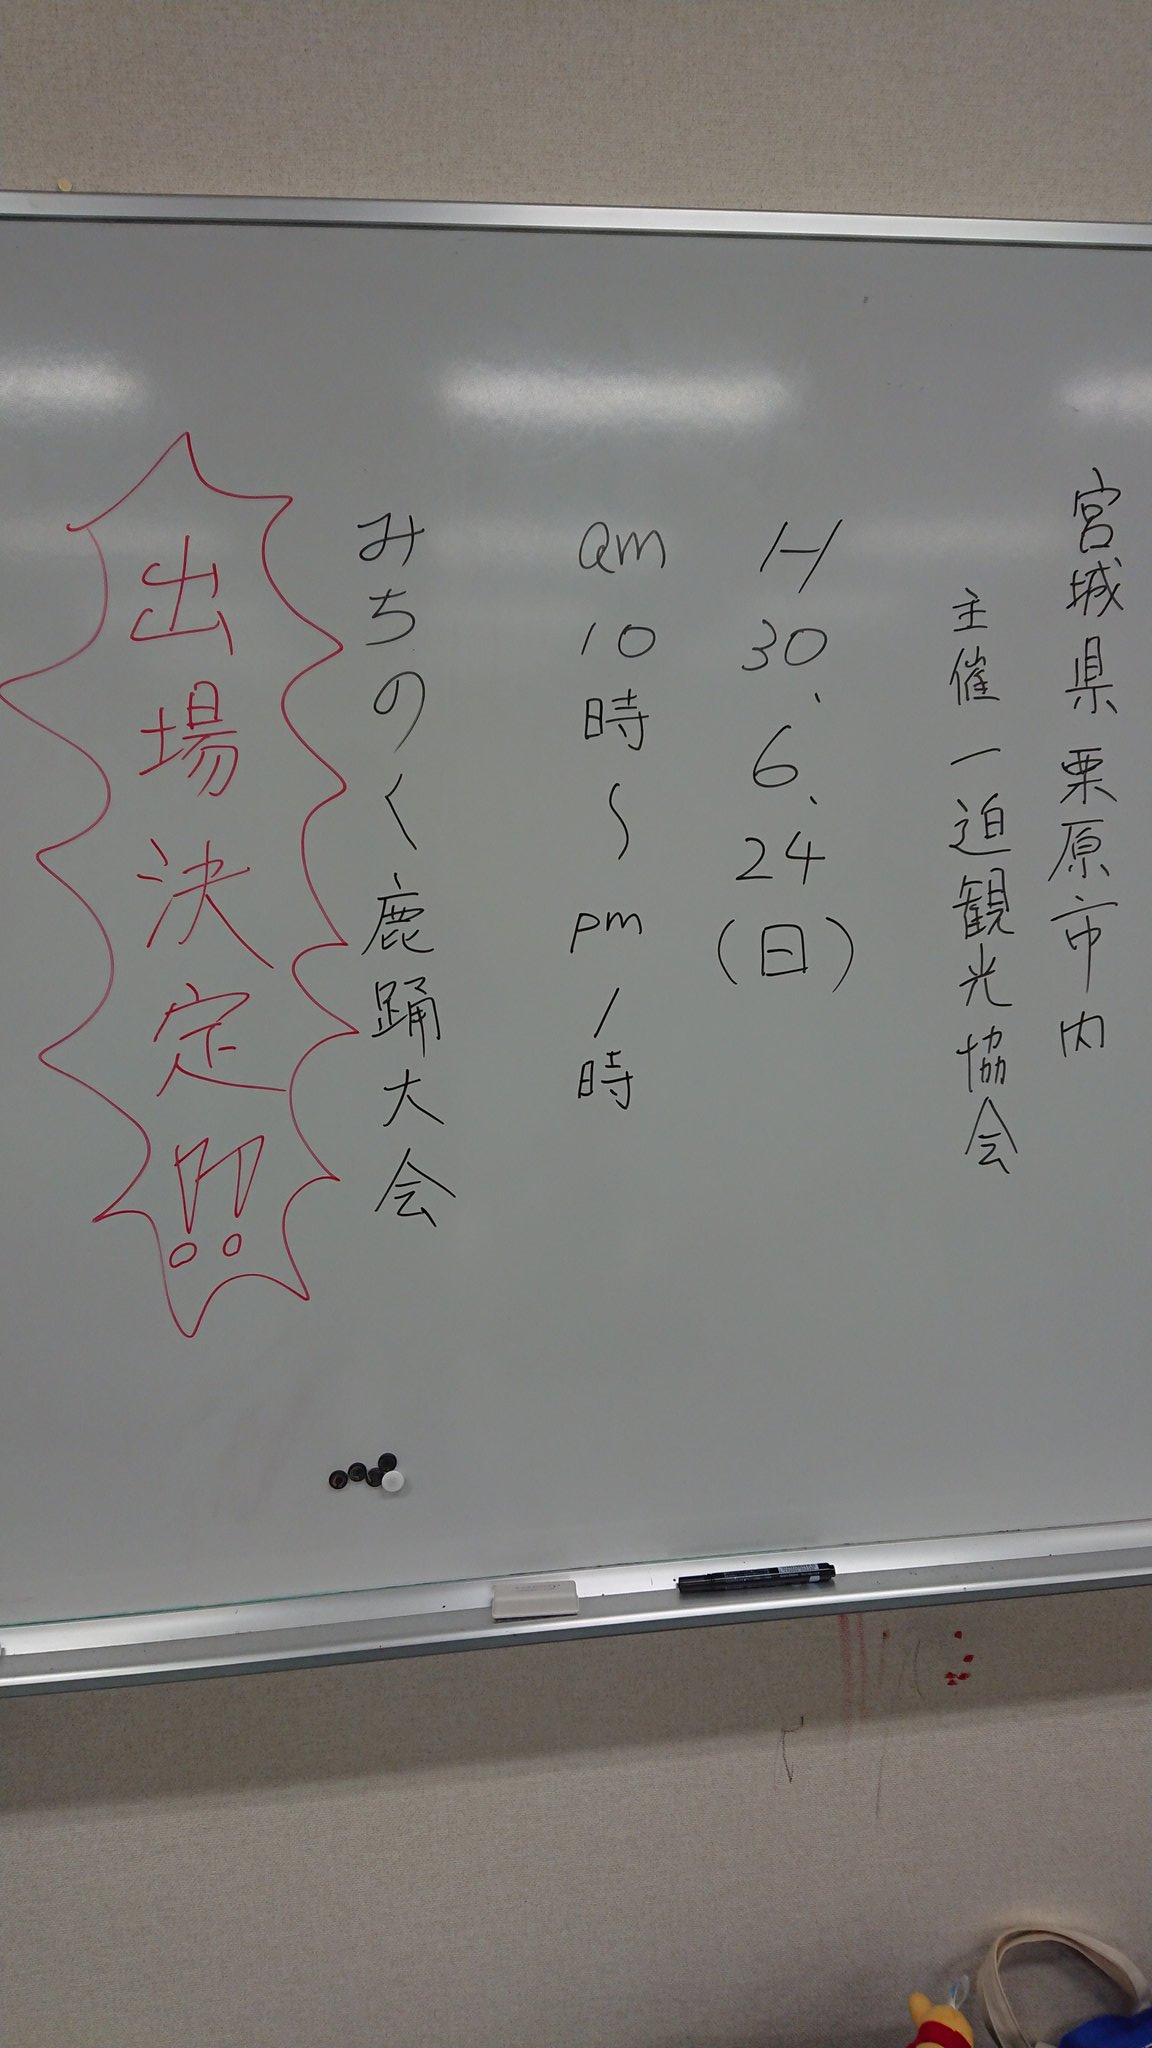 宮城県 栗原市内
主催 一迫観光協会
H30.6.24(日)
am10時〜pm1時
みちのく鹿踊大会
出場決定!!